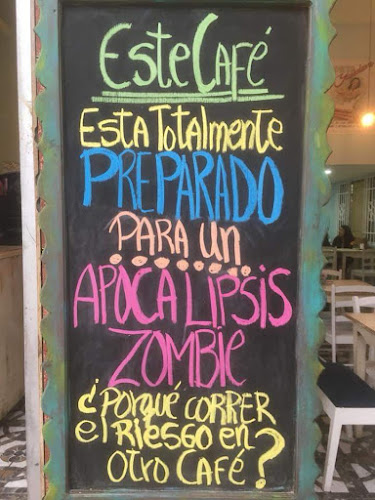 Este Café
Esta Totalmente
PREPARADO
PARA un
APOCALIPSIS
ZOMBIE
¿Porqué CORRER
el RIESGO en
otro Café?